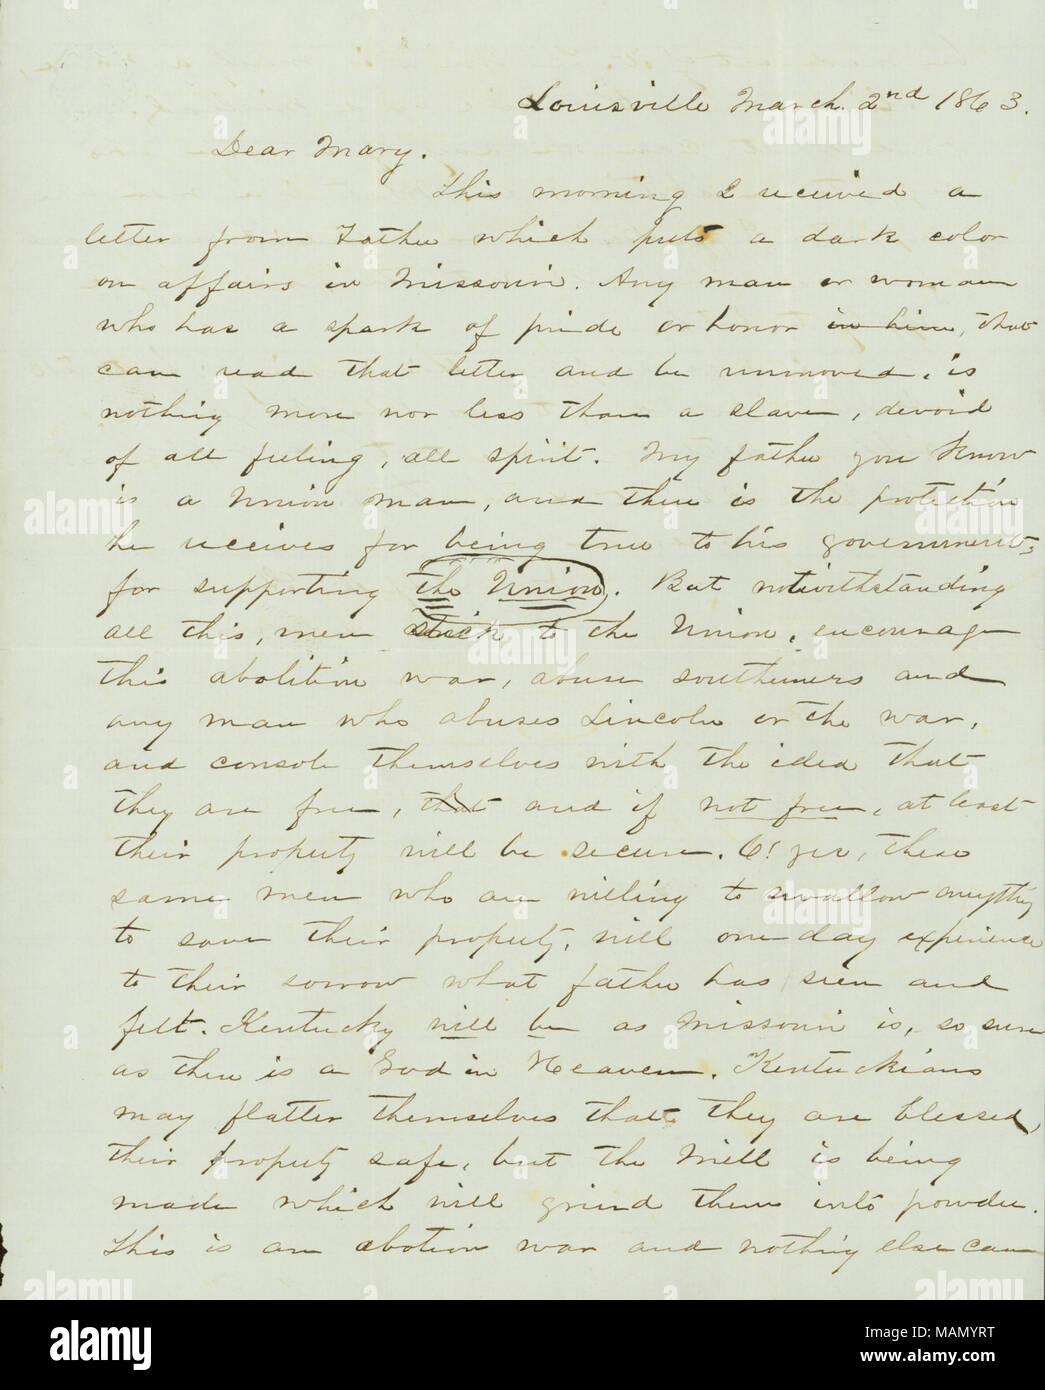 Louisville March. 2nd 1863.
Dear Mary.
This morning I received a
letter from Father which puts a dark color
on affairs in Missouri. Any man or woman
who has a spark of pride or honor in him, that
can read that letter and be unmoved, is
nothing more nor less than a slave, devoid
of all feeling, all spirit. My father you know
is a Union man, and there is the protection
he receives for being true to his government,
for supporting the Union. But notwithstanding
all this, men stick to the Union, encourage
this abolition war, abuse southerners and
any man who abuses Lincoln or the war,
and console themselves with the idea that
they are free, that and if not free, at least
their property will be secure. O! yes, these
same men who are willing to swallow anything
to save their property, will one day experience
to their sorrow what father has seen and
felt. Kentucky will be as Missouri is, so sure
as there is a God in Heaven. Kentuckians
may flatter themselves that they are blessed,
their property safe, but the Mill is being
made which will grind them into powder.
This is an abotion war and nothing else can
alamy
Image ID: MAMYRT
www.alamy.com